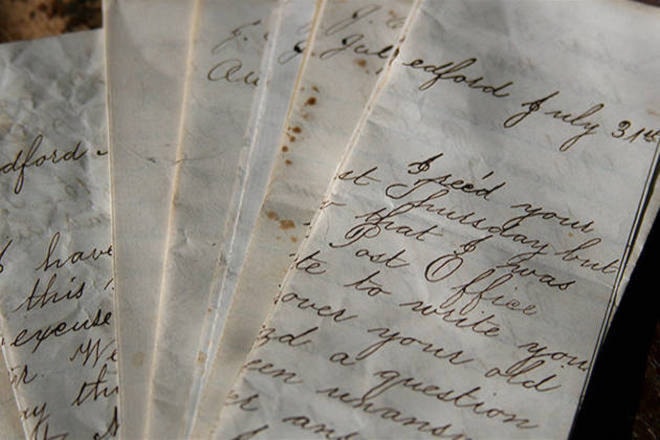 dford
I have
this
excuse
r. We
J.
Au
J. July
edford July 31st
I rec'd your
st Thursday but
that I was
Post Office
te to write you
over your old
a question
een unansw